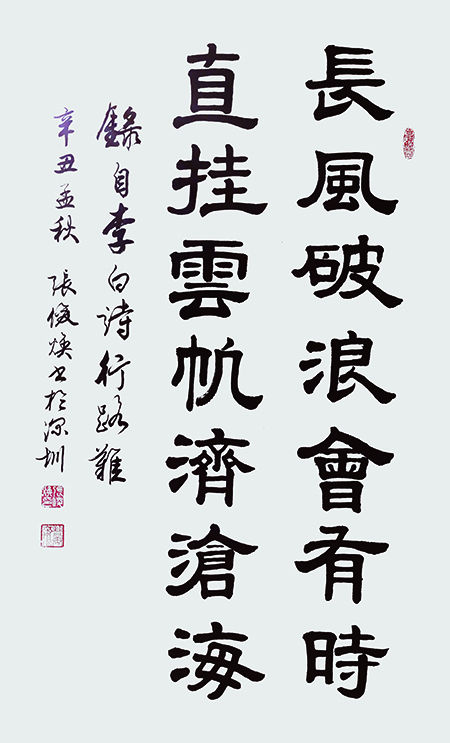 長風破浪會有時
直挂雲帆濟滄海
錄自李白詩行路難
辛丑孟秋 張俊煥書於深圳